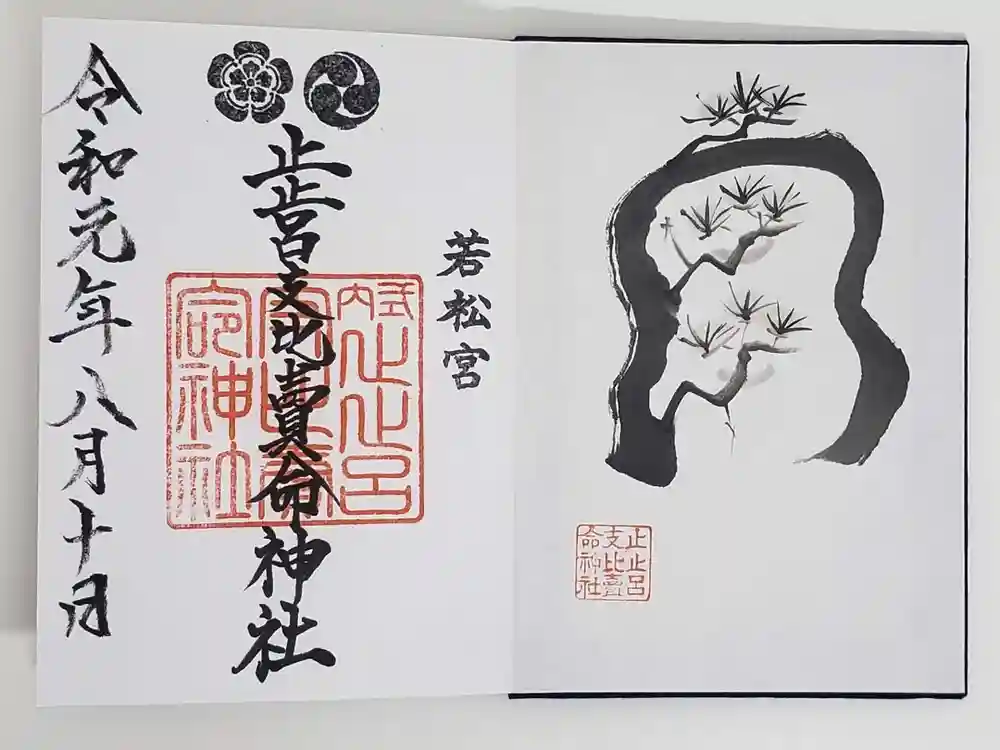 若松宮
止止呂支比賣命神社
令和元年八月十日
式内
止止呂
支比賣
命神社
止止呂
支比賣
命神社